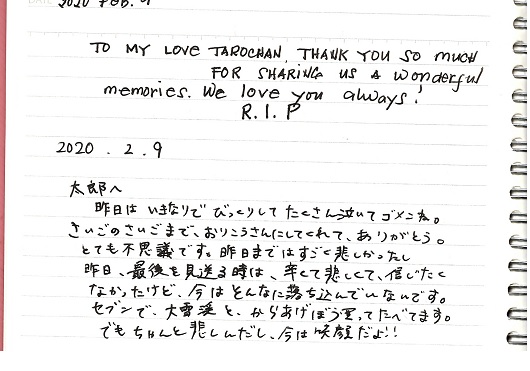 2020 FEB. 9
TO MY LOVE TAROCHAN, THANK YOU SO MUCH
FOR SHARING US A wonderful
memories. We love you always!
R.I.P
2020.2.9
太郎へ
昨日は いきなりで びっくりして たくさん泣いてゴメンね。
さいごのさいごまで、おりこうさんにしてくれて、ありがとう。
とても不思議です。昨日まではすごく悲しかったし
昨日、最後を見送る時は、辛くて悲しくて、信じたく
なかったけど、今はそんなに落ち込んでいないです。
セブンで、大雪渓と、からあげぼう買ってたべてます。
でもちゃんと悲しんだし、今は笑顔だよ!!